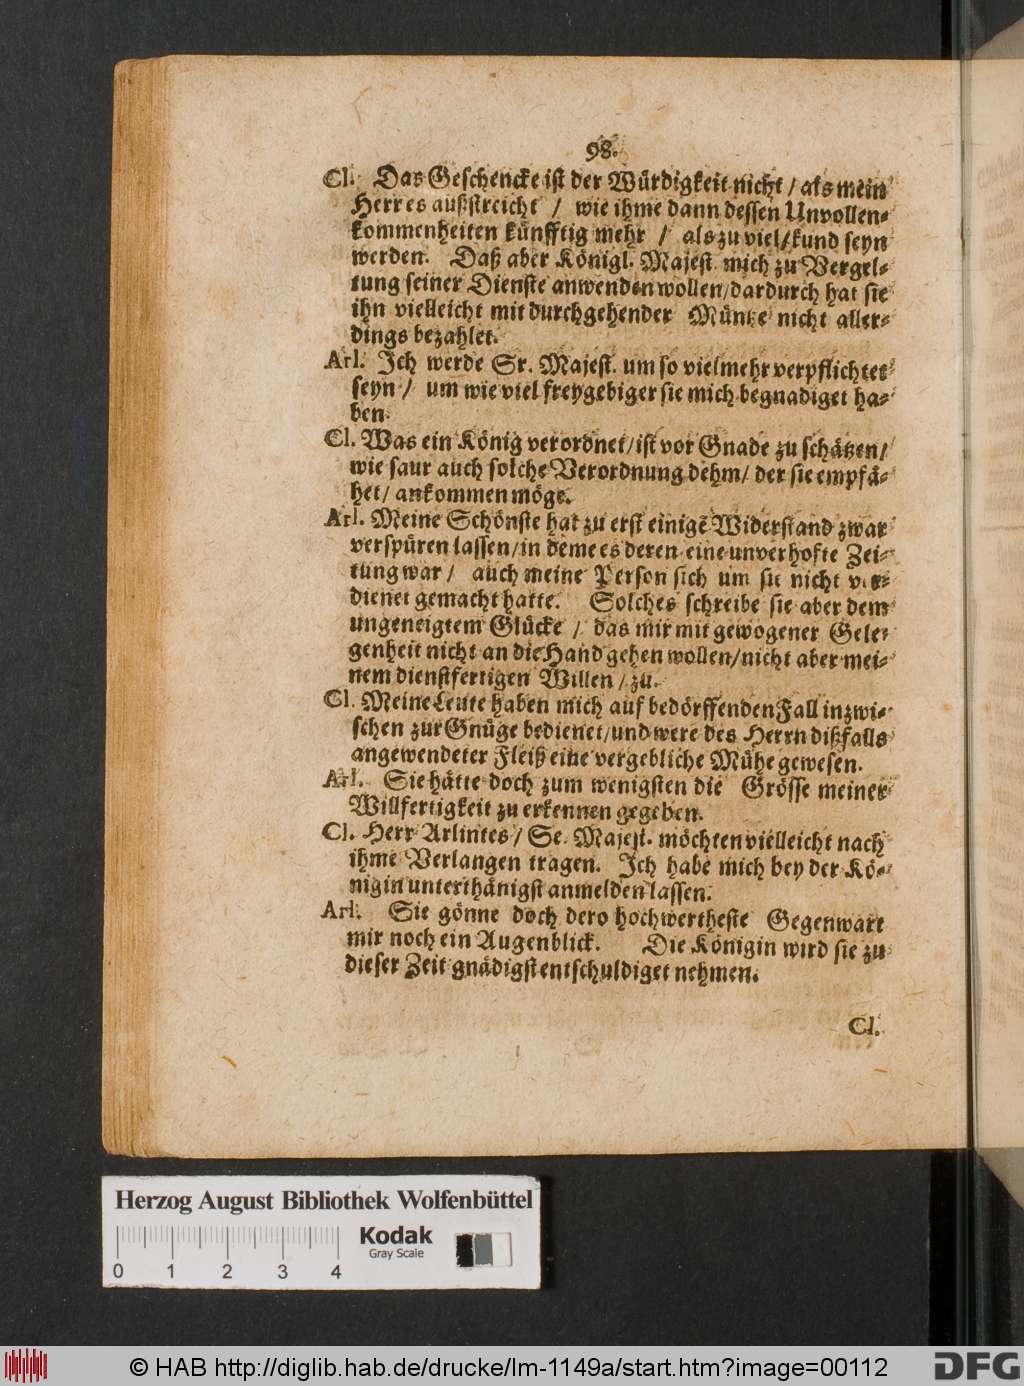 98.
Cl. Das Geschencke ist der Würdigkeit nicht / als mein
Herr es außstreicht / wie ihme dann dessen Unvollen-
kommenheiten künfftig mehr / als zu viel / kund seyn
werden. Daß aber Königl. Majest. mich zu Vergel-
tung seiner Dienste anwenden wollen / dardurch hat sie
ihn vielleicht mit durchgehender Müntze nicht aller-
dings bezahlet.
Arl. Ich werde Sr. Majest. um so vielmehr verpflichtet
seyn / um wie viel freygebiger sie mich begnadiget ha-
ben.
Cl. Was ein König verordnet / ist vor Gnade zu schätzen /
wie saur auch solche Verordnung dehm / der sie empfä-
het / ankommen möge.
Arl. Meine Schönste hat zu erst einigē Widerstand zwar
verspüren lassen / in deme es deren eine unverhofte Zei-
tung war / auch meine Person sich um sie nicht ver-
dienet gemacht hatte. Solches schreibe sie aber dem
ungeneigtem Glücke / das mir mit gewogener Gele-
genheit nicht an die Hand gehen wollen / nicht aber mei-
nem dienstfertigen Willen / zu.
Cl. Meine Leute haben mich auf bedörffenden Fall inzwi-
schen zur Gnüge bedienet / und were des Herrn dißfalls
angewendeter Fleiß eine vergebliche Mühe gewesen.
Arl. Sie hätte doch zum wenigsten die Grösse meiner
Willfertigkeit zu erkennen gegeben.
Cl. Herr Arlintes / Se. Majest. möchten vielleicht nach
ihme Verlangen tragen. Ich habe mich bey der Kö-
nigin unterthänigst anmelden lassen.
Arl. Sie gönne doch dero hochwertheste Gegenwart
mir noch ein Augenblick. Die Königin wird sie zu
dieser Zeit gnädigst entschuldiget nehmen.
Cl.
Herzog August Bibliothek Wolfenbüttel
Kodak
Gray Scale
0 1 2 3 4
© HAB http://diglib.hab.de/drucke/lm-1149a/start.htm?image=00112
DFG